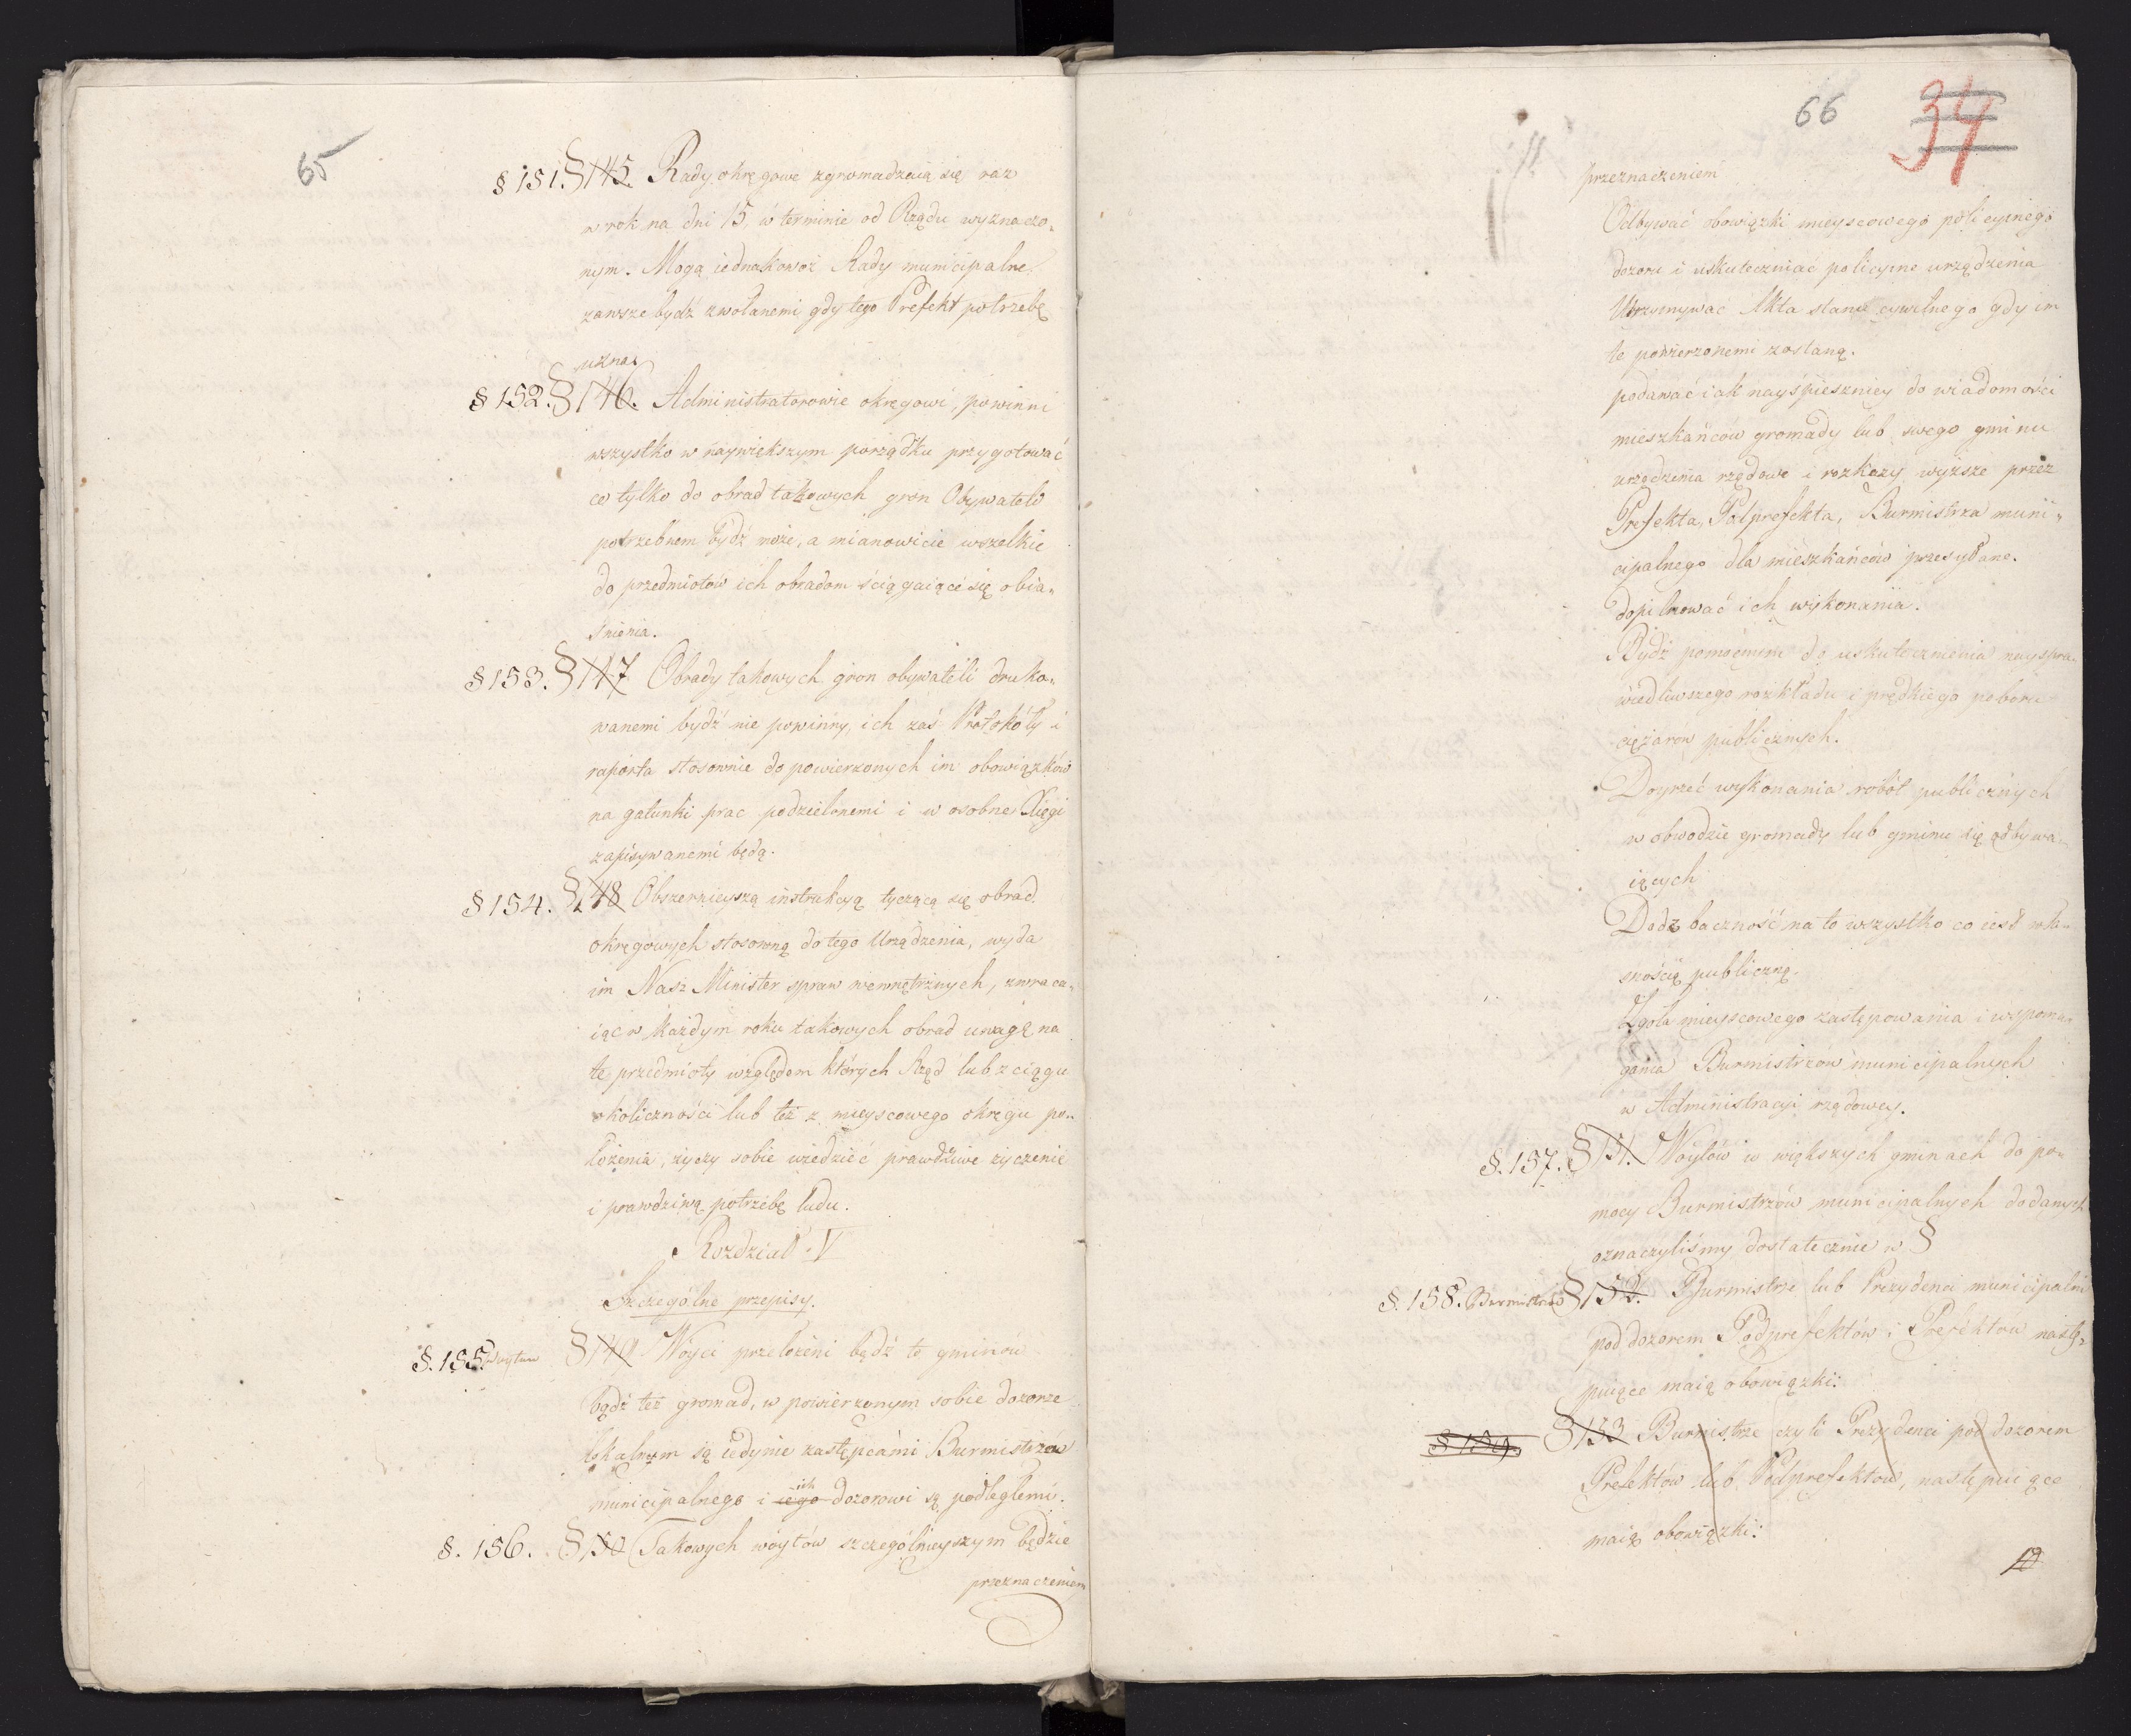 65
§ 151. § 145. Rady okręgowe zgromadzaią się raz
w rok na dni 15, w terminie od Rządu wyznaczo„
nym. Mogą iednakowoż Rady municipalne
zawsze bydź zwołanemi gdy tego Prefekt potrzebę
uzna.
§ 152. § 146. Administratorowie okręgowi, powinni
wszystko w naywiększym porządku przygotować
co tylko do obrad takowych gron Obywateli
potrzebnem bydź może, a mianowicie wszelkie
do przedmiotów ich obradom ściągaiące się obia„
śnienia.
§ 153. § 147 Obrady takowych gron obywateli druko„
wanemi bydź nie powinny, ich zaś Protokóły i
raporta stosownie do powierzonych im obowiązków
na gatunki prac podzielonemi i w osobne Xięgi
zapisywanemi będą.
§ 154. § 148 Obszernieyszą instrukcyą tyczącą się obrad
okręgowych stosowną do tego Urządzenia, wyda
im Nasz Minister spraw wewnętrznych, zwraca„
iąc w każdym roku takowych obrad uwagę na
te przedmioty względem których Rząd lub z ciągu
okoliczności lub też z mieyscowego okręgu po„
łożenia, życzy sobie wiedzieć prawdziwe życzenie
i prawdziwą potrzebę ludu.
Rozdział V
Szczególne przepisy.
§. 155. Woytow § 149 Woyci przełożeni bądź to gminów
bądź też gromad, w powierzonym sobie dozorze
lokalnym są iedynie zastępcami Burmistrzow
municipalnego i iego ich dozorowi są podległemi.
§. 156. § 150 Takowych wóytów szczególnieyszym będzie
przeznaczeniem
66
34
przeznaczeniem
Odbywać obowiązki mieyscowego policyinego
dozoru i uskuteczniać policyine urządzenia
Utrzymywać Akta stanu cywilnego gdy im
te powierzonemi zostaną.
podawać iak nayśpieszniey do wiadomości
mieszkańców gromady lub swego gminu
urządzenia rządowe i rozkazy wyższe przez
Prefekta, Podprefekta, Burmistrza muni„
cipalnego dla mieszkańców przesyłane.
dopilnować ich wykonania.
Bydź pomocnemi do uskutecznienia nayspra„
wiedliwszego rozkładu i prędkiego poboru
ciężarow publicznych.
Doyrzeć wykonania robót publicznych
w obwodzie gromady lub gminu się odbywa„
iących
Dadz baczność na to wszystko co iest wła„
snością publiczną.
Zgoła mieyscowego zastępowania i wspoma„
gania Burmistrzow municipalnych
w Administracyi rządowey.
§. 157. § 151. Woytów w większych gminach do po„
mocy Burmistrzów municipalnych dodanych
oznaczyliśmy dostatecznie w §
§. 158. Burmistrzów § 152. Burmistrze lub Prezydenci municipalni
pod dozorem Podprefektów i Prefektow nastę„
puiące maią obowiązki:
§ 159. § 153 Burmistrze czyli Prezydenci pod dozorem
Prefektów lub Podprefektów, następuiące
maią obowiązki: